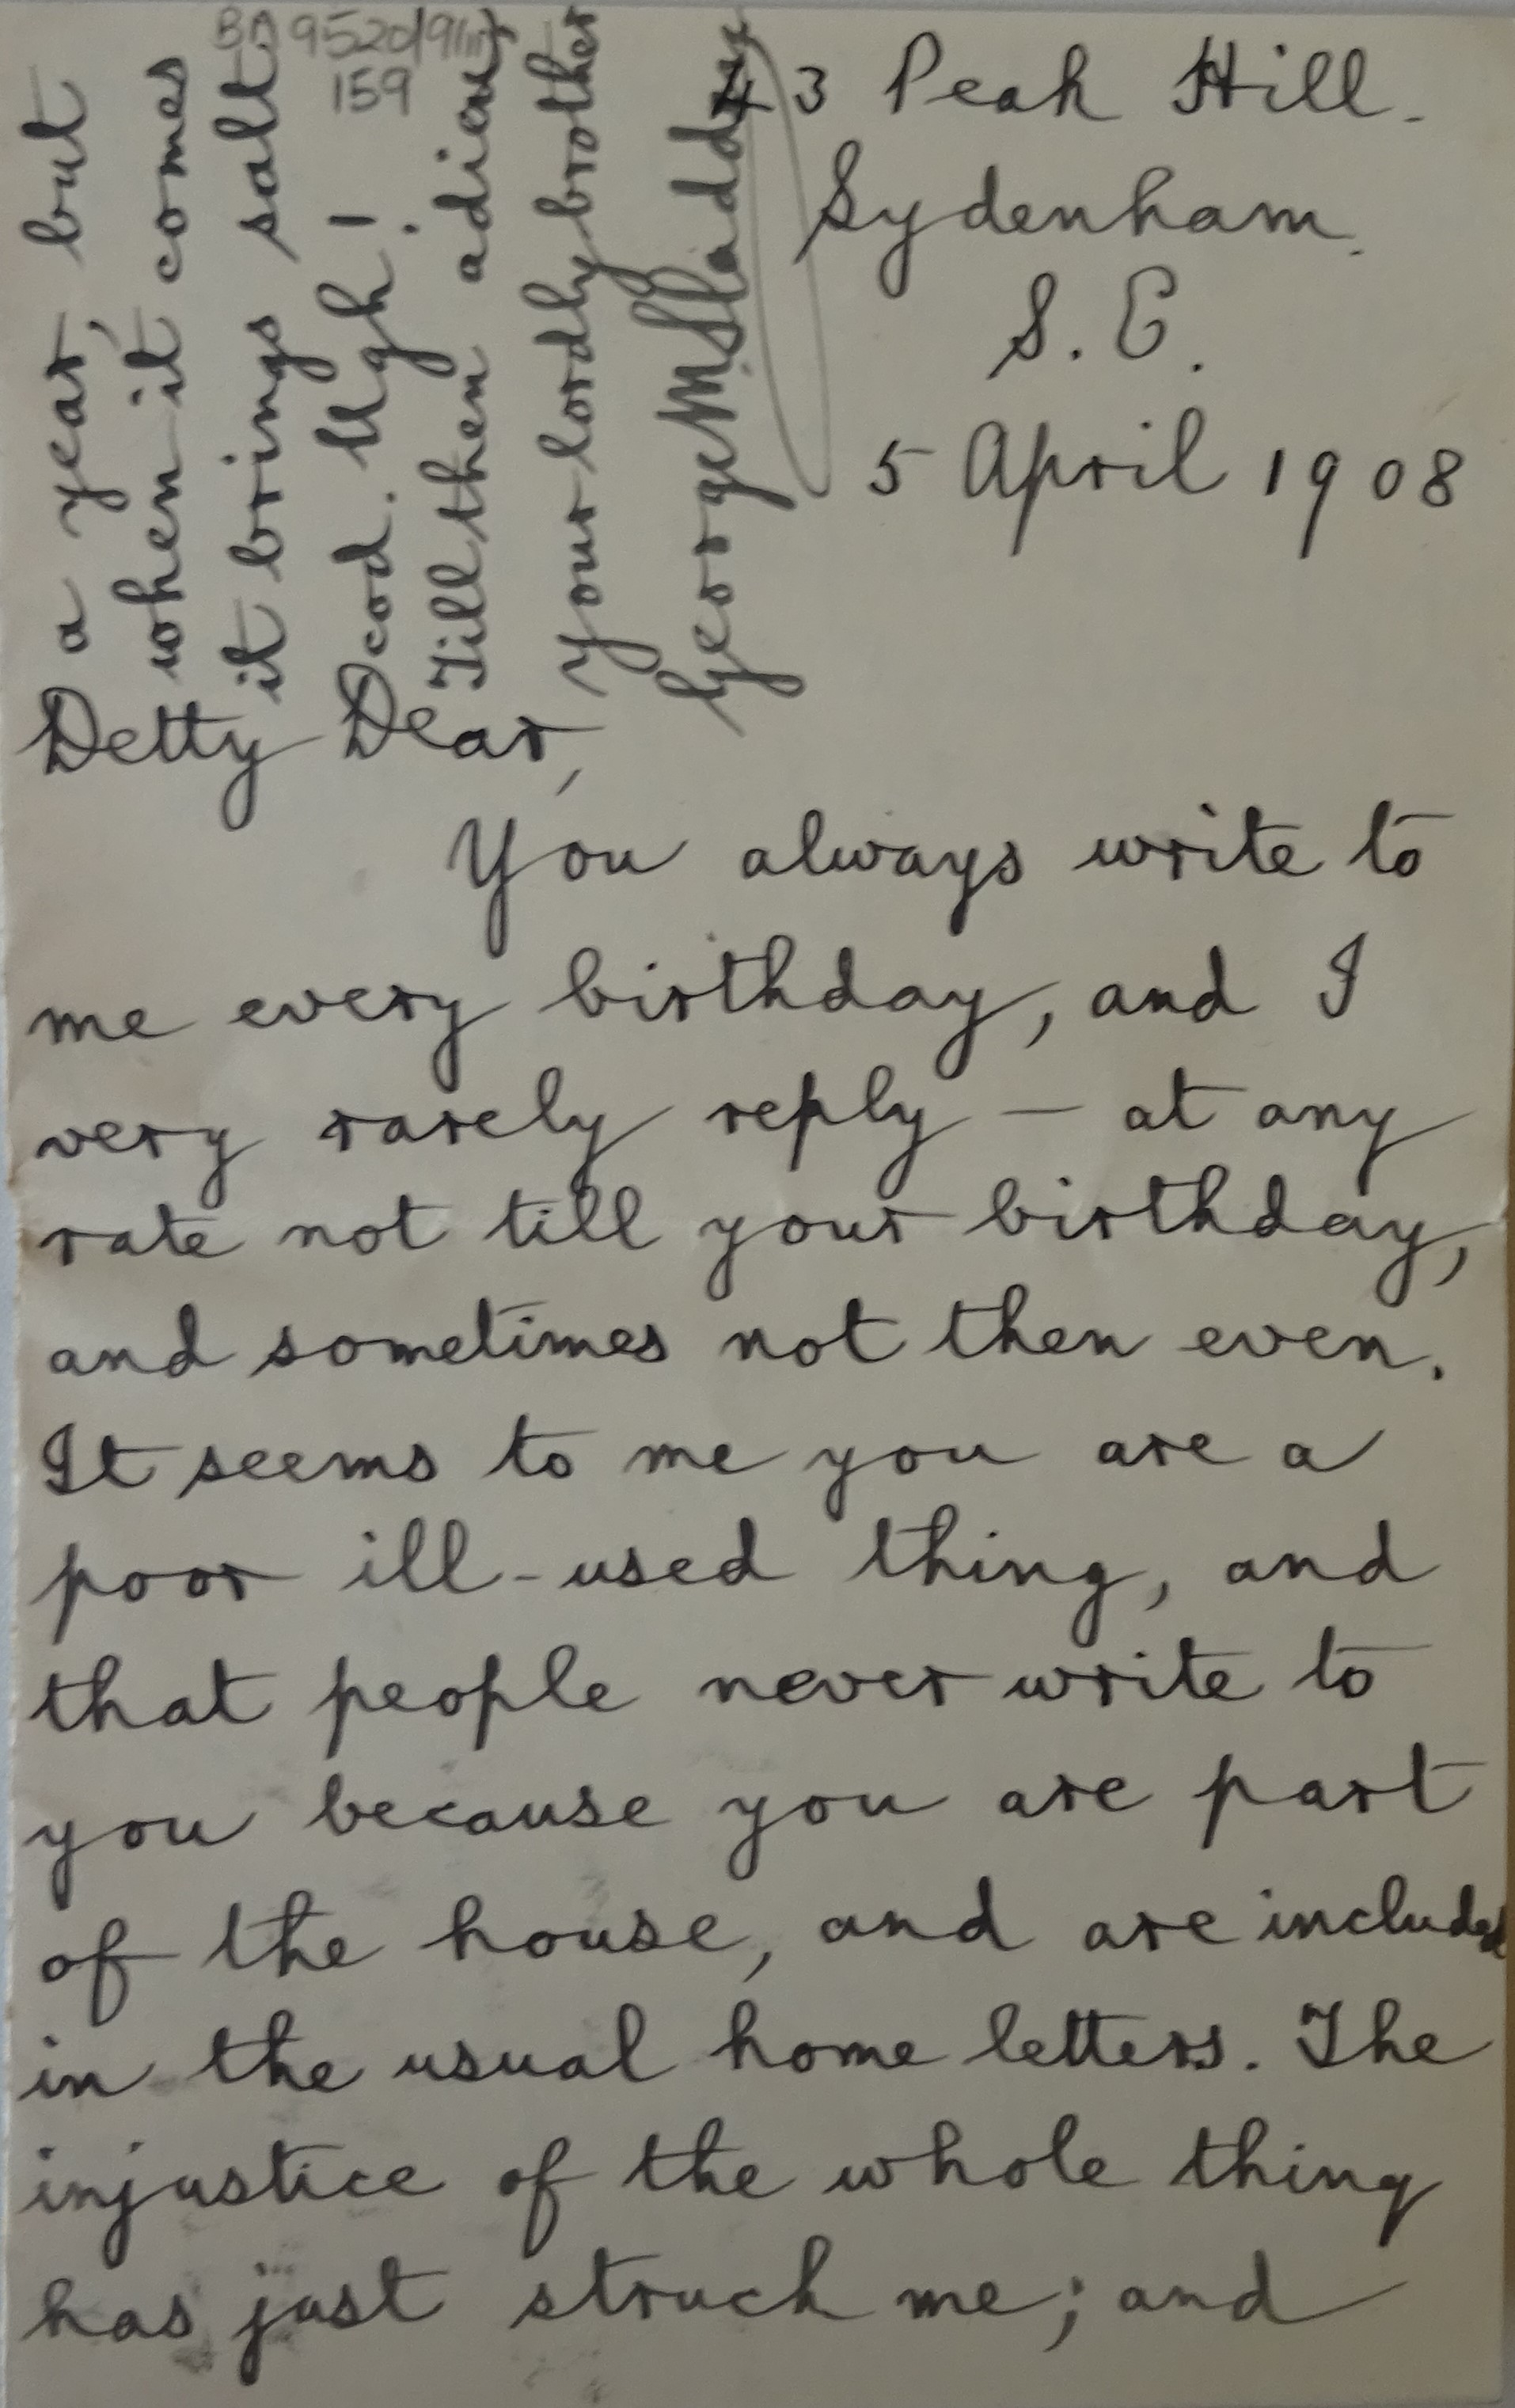 BA 9520/9(iii)
159
43 Peak Hill.
Sydenham.
S. E.
5 April 1908
Detty Dear,
You always write to
me every birthday, and I
very rarely reply — at any
rate not till your birthday,
and sometimes not then even.
It seems to me you are a
poor ill-used thing, and
that people never write to
you because you are part
of the house, and are included
in the usual home letters. The
injustice of the whole thing
has just struck me; and
a year, but
when it comes
it brings salt
cod. Ugh!
Till then adieu,
your lordly brother
George M.